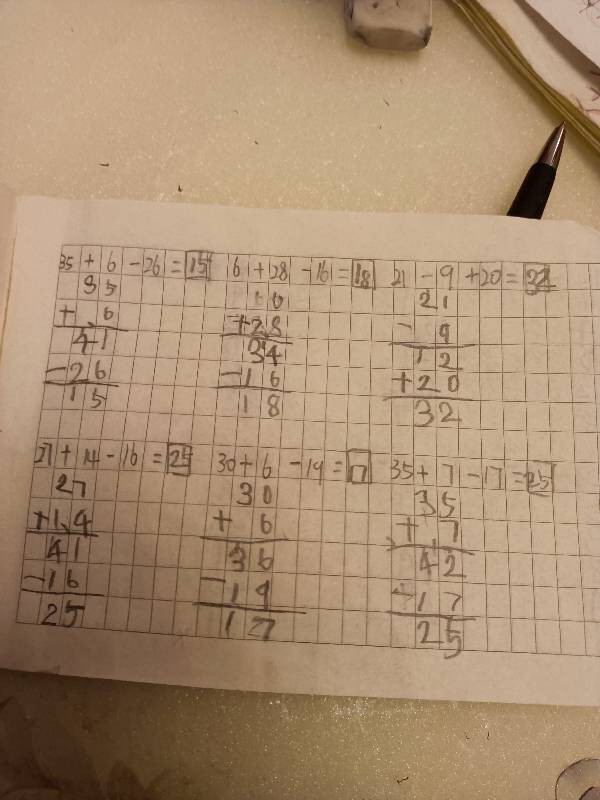 35 + 6 - 26 = 15
35
+ 6
41
- 26
15
6 + 28 - 16 = 18
+ 28
34
- 16
18
21 - 9 + 20 = 32
21
- 9
12
+ 20
32
27 + 14 - 16 = 25
27
+ 14
41
- 16
25
30 + 6 - 19 = 17
30
+ 6
36
- 19
17
35 + 7 - 17 = 25
35
+ 7
42
- 17
25